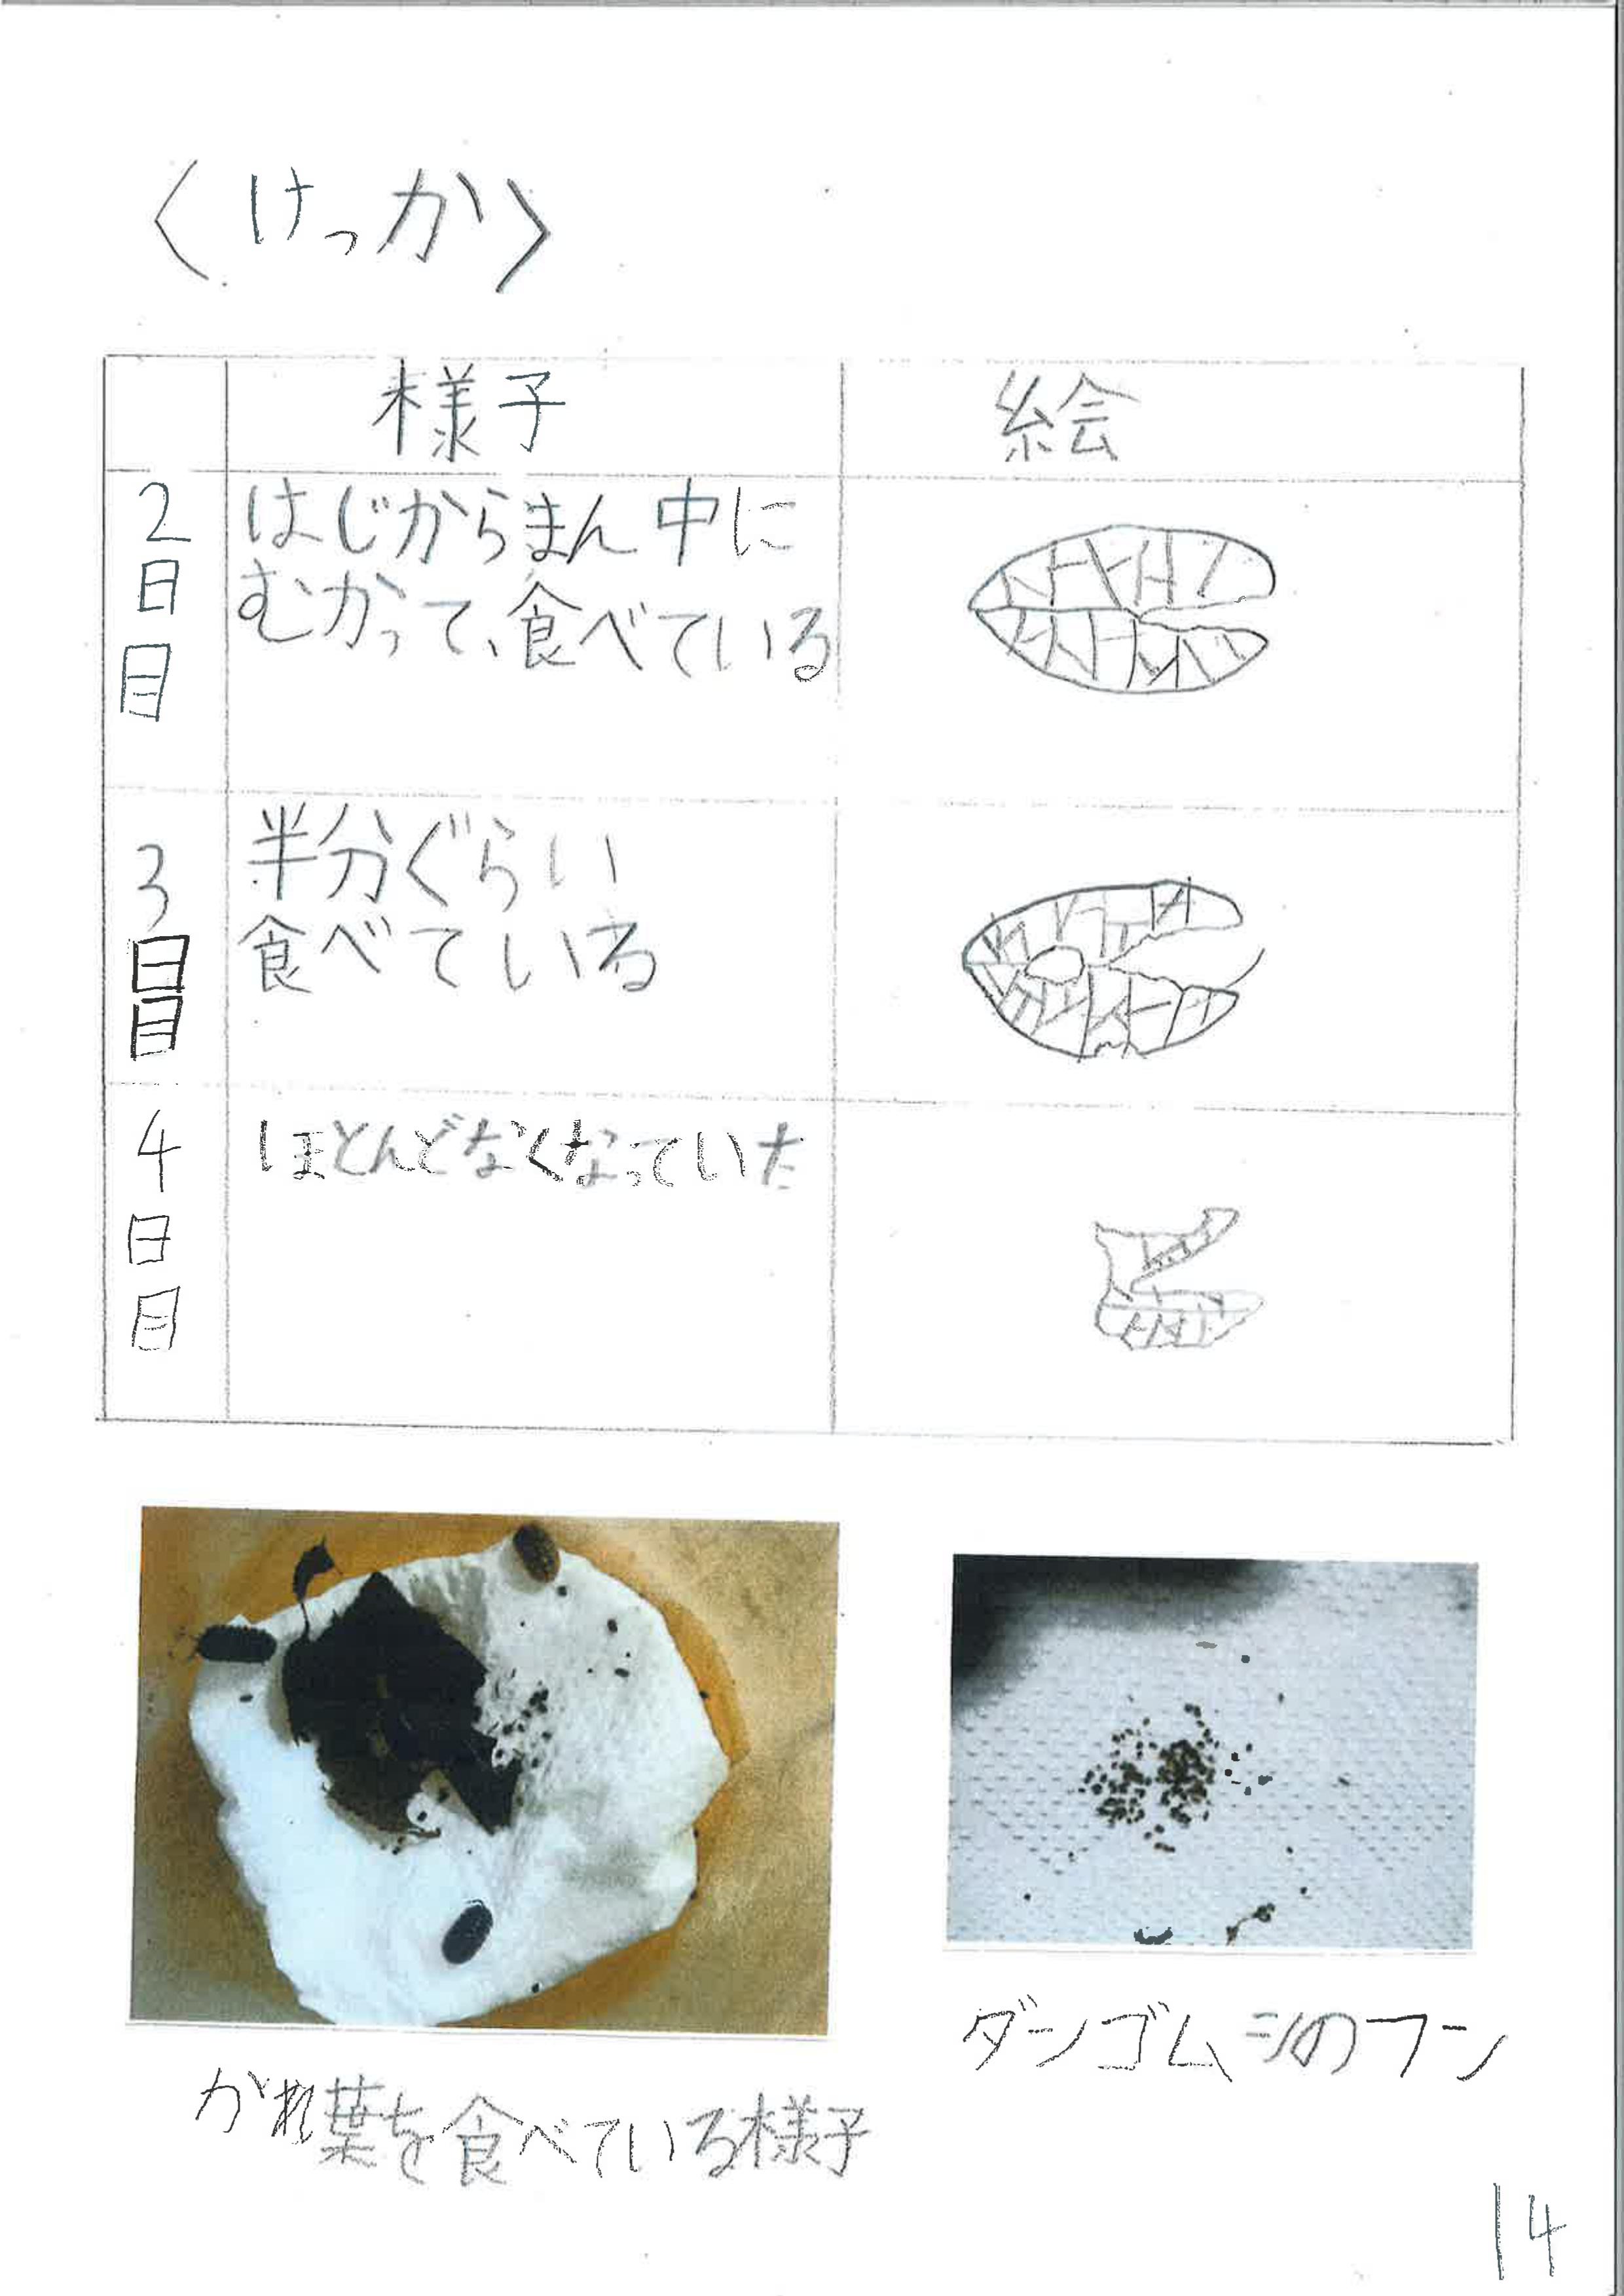 〈けっか〉
様子
絵
2日目
はじからまん中に
むかって、食べている
3日目
半分ぐらい
食べている
4日目
ほとんどなくなっていた
ダンゴムシのフン
かれ葉を食べている様子
14